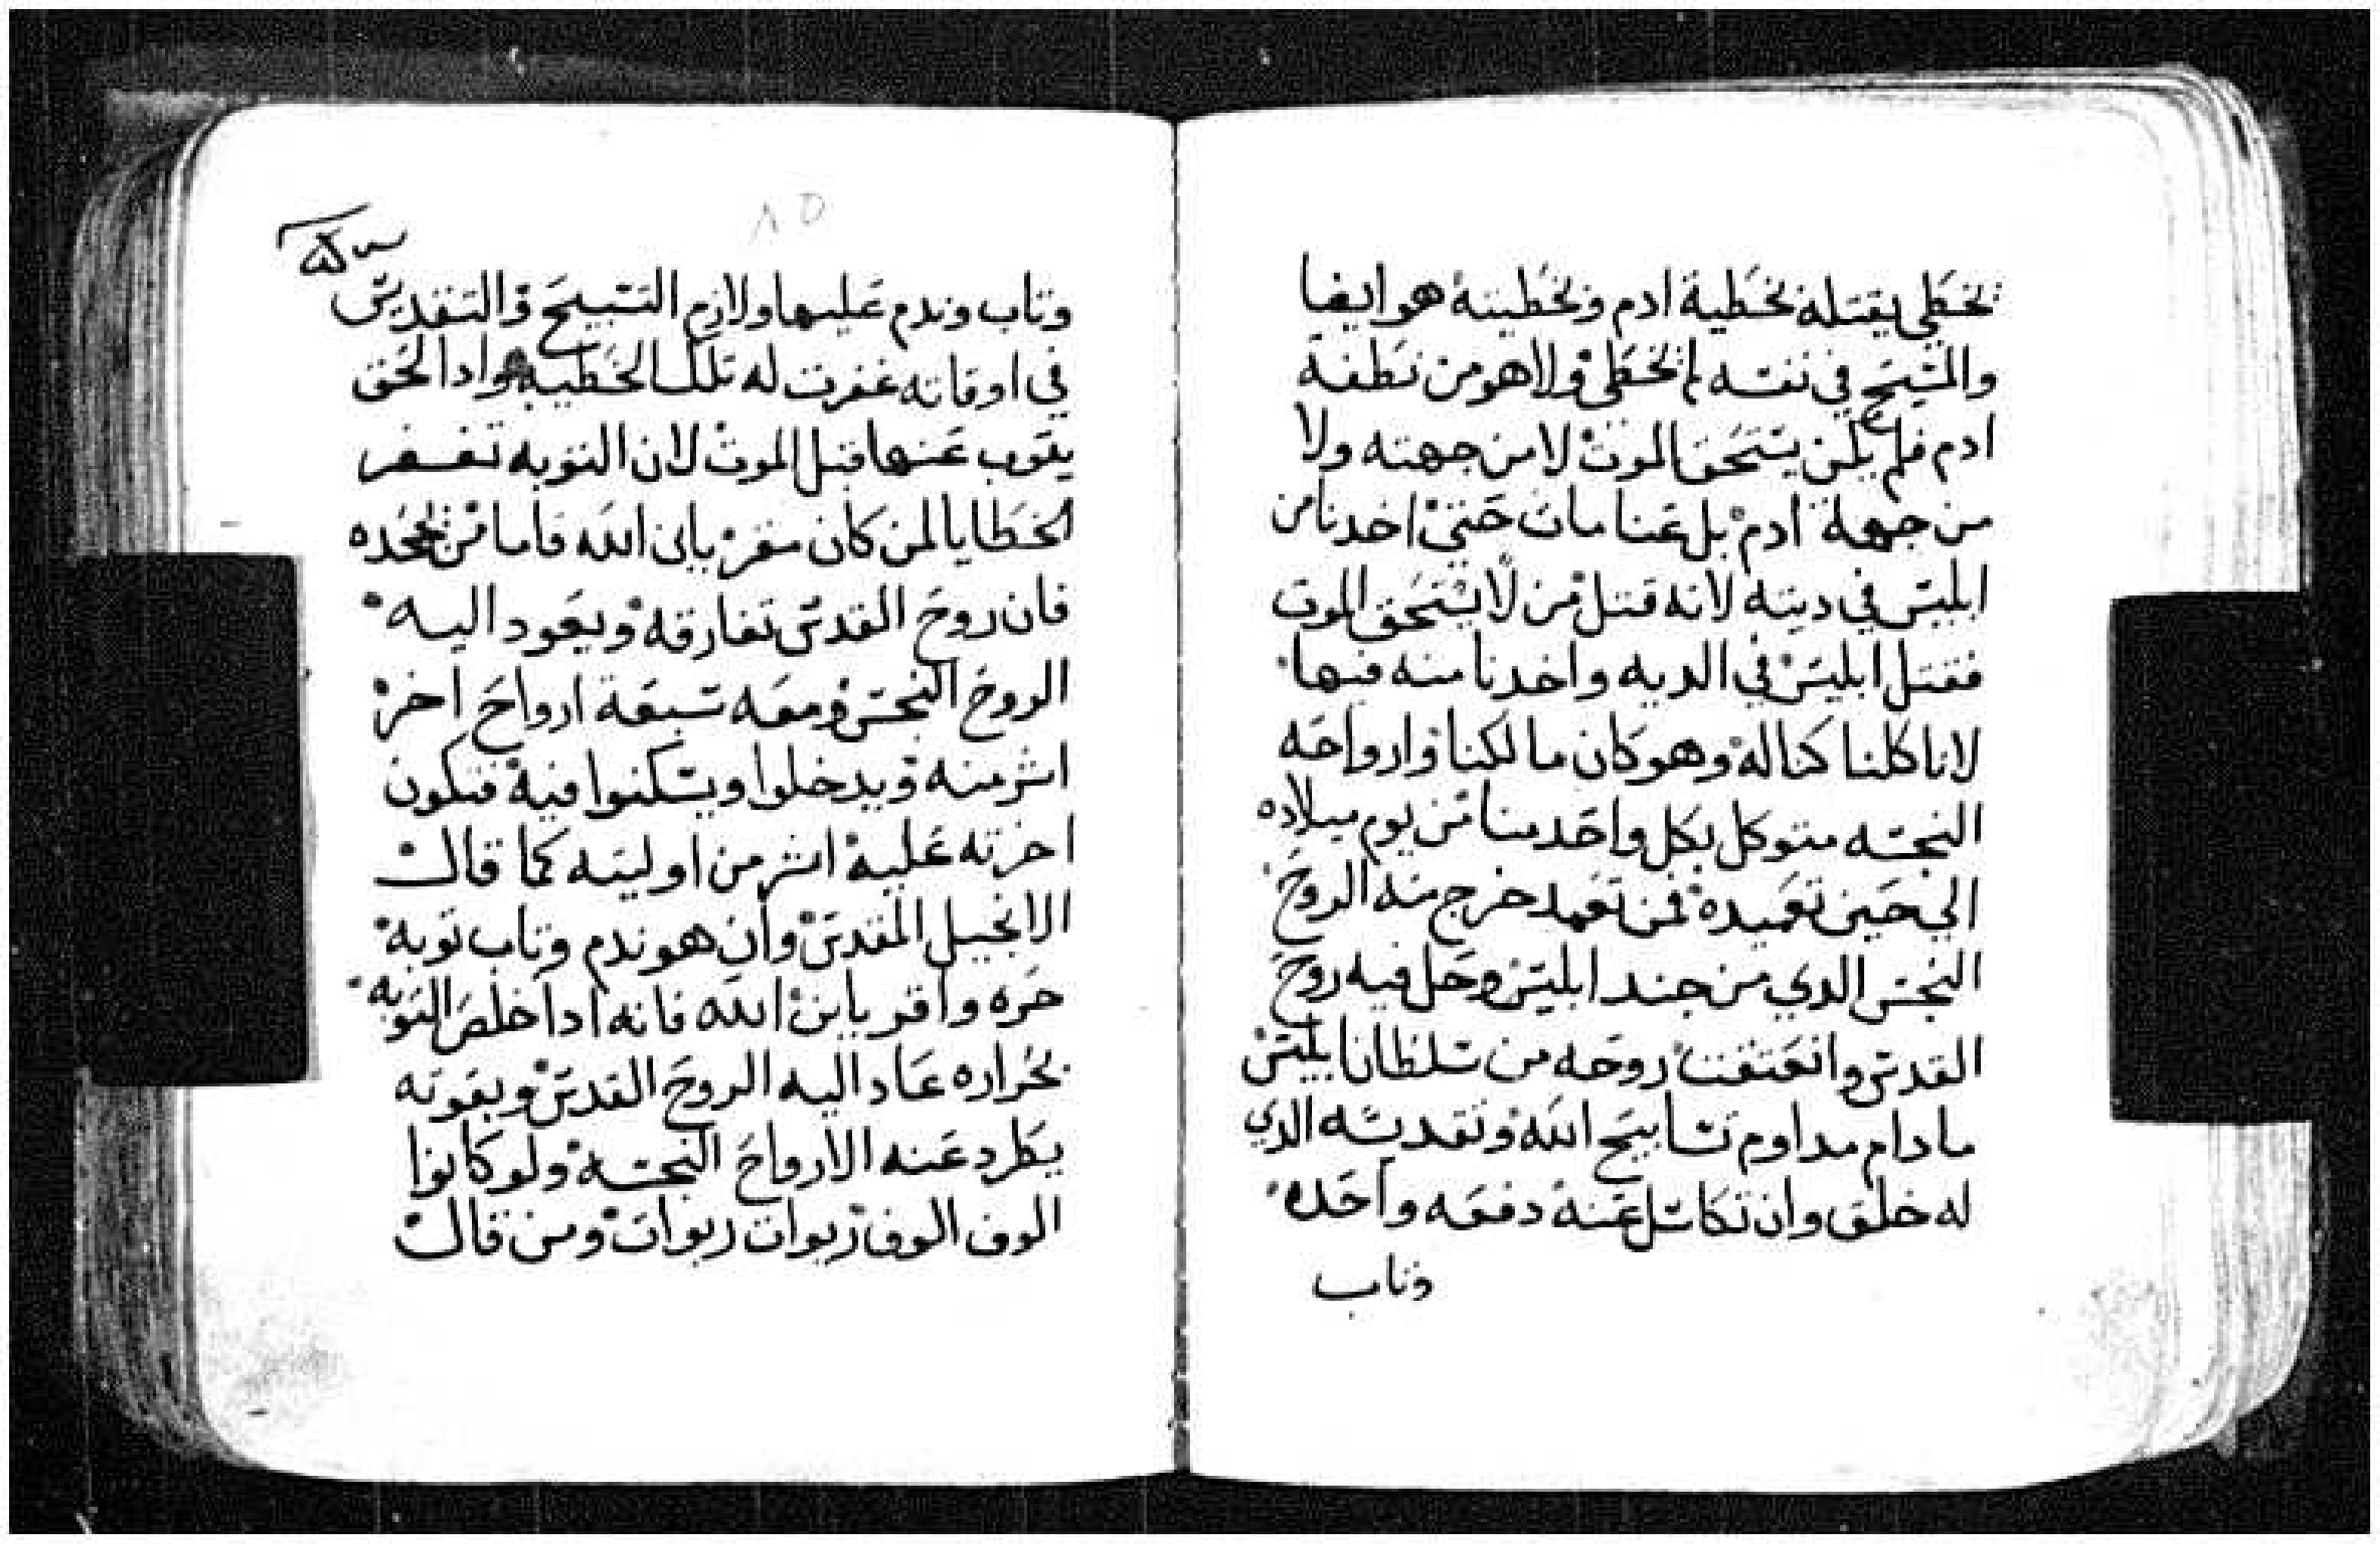 نخطي يقتله بخطية ادم وبخطيته هو ايضا
والمسيح في نفسه لم نخطي ولا هو من نطفة
ادم فلم يكن يستحق الموت لا من جهته ولا
من جهة ادم بل عنا مات حتي اخدنا من
ابليس في ديته لانه قتل من لا يستحق الموت
فقتل ابليس في الديه واخدنا منه فيها
لانا كلنا كنا له وهو كان مالكنا وارواحه
النجسه متوكل بكل واحد منا من يوم ميلاده
الي حين تعميده فمن تعمد خرج منه الروح
النجس الدي من جند ابليس وحل فيه روح
القدس وانعتقت روحه من سلطان ابليس
ما دام مداوم تسابيح الله وتقديسه الدي
له خلق وان تكاسل عنه دفعه واحده
وتاب
٨٥
وتاب وندم عليها ولازم التسبيح والتقديس
في اوقاته غفرت له تلك الخطيه وادا لحق
يتوب عنها قبل الموت لان التوبه تغفر
الخطايا لمن كان مقر بابن الله فاما من جحده
فان روح القدس تفارقه ويعود اليه
الروح النجس ومعه سبعة ارواح اخر
اشر منه ويدخلوا ويسكنوا فيه فتكون
اخرته عليه اشر من اوليته كما قال
الانجيل المقدس وان هو ندم وتاب توبه
حره واقر بابن الله فانه ادا خلص التوبه
بحراره عاد اليه الروح القدس وبقوته
يطرد عنه الارواح النجسه ولو كانوا
الوف الوف ربوات ربوات ومن قال